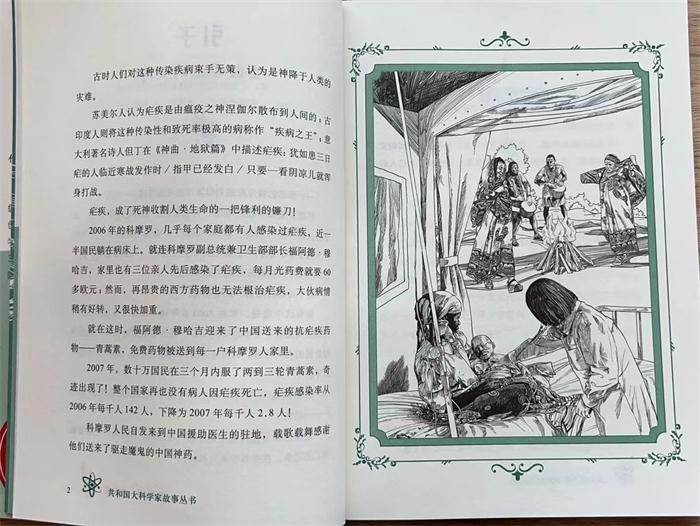 古时人们对这种传染疾病束手无策，认为是神降于人类的
灾难。
苏美尔人认为疟疾是由瘟疫之神涅伽尔散布到人间的；古
印度人则将这种传染性和致死率极高的病称作“疾病之王”；意
大利著名诗人但丁在《神曲·地狱篇》中描述疟疾：犹如患三日
疟的人临近寒战发作时/指甲已经发白/只要一看阴凉儿就浑
身打战。
疟疾，成了死神收割人类生命的一把锋利的镰刀！
2006年的科摩罗，几乎每个家庭都有人感染过疟疾，近一
半国民躺在病床上，就连科摩罗副总统兼卫生部部长福阿德·穆
哈吉，家里也有三位亲人先后感染了疟疾，每月光药费就要60
多欧元；然而，再昂贵的西方药物也无法根治疟疾，大伙病情
稍有好转，又很快加重。
就在这时，福阿德·穆哈吉迎来了中国送来的抗疟疾药
物——青蒿素，免费药物被送到每一户科摩罗人家里。
2007年，数十万国民在三个月内服了两到三轮青蒿素，奇
迹出现了！整个国家再也没有病人因疟疾死亡，疟疾感染率从
2006年每千人142人，下降为2007年每千人2.8人！
科摩罗人民自发来到中国援助医生的驻地，载歌载舞感谢
他们送来了驱走魔鬼的中国神药。
2 共和国大科学家故事丛书